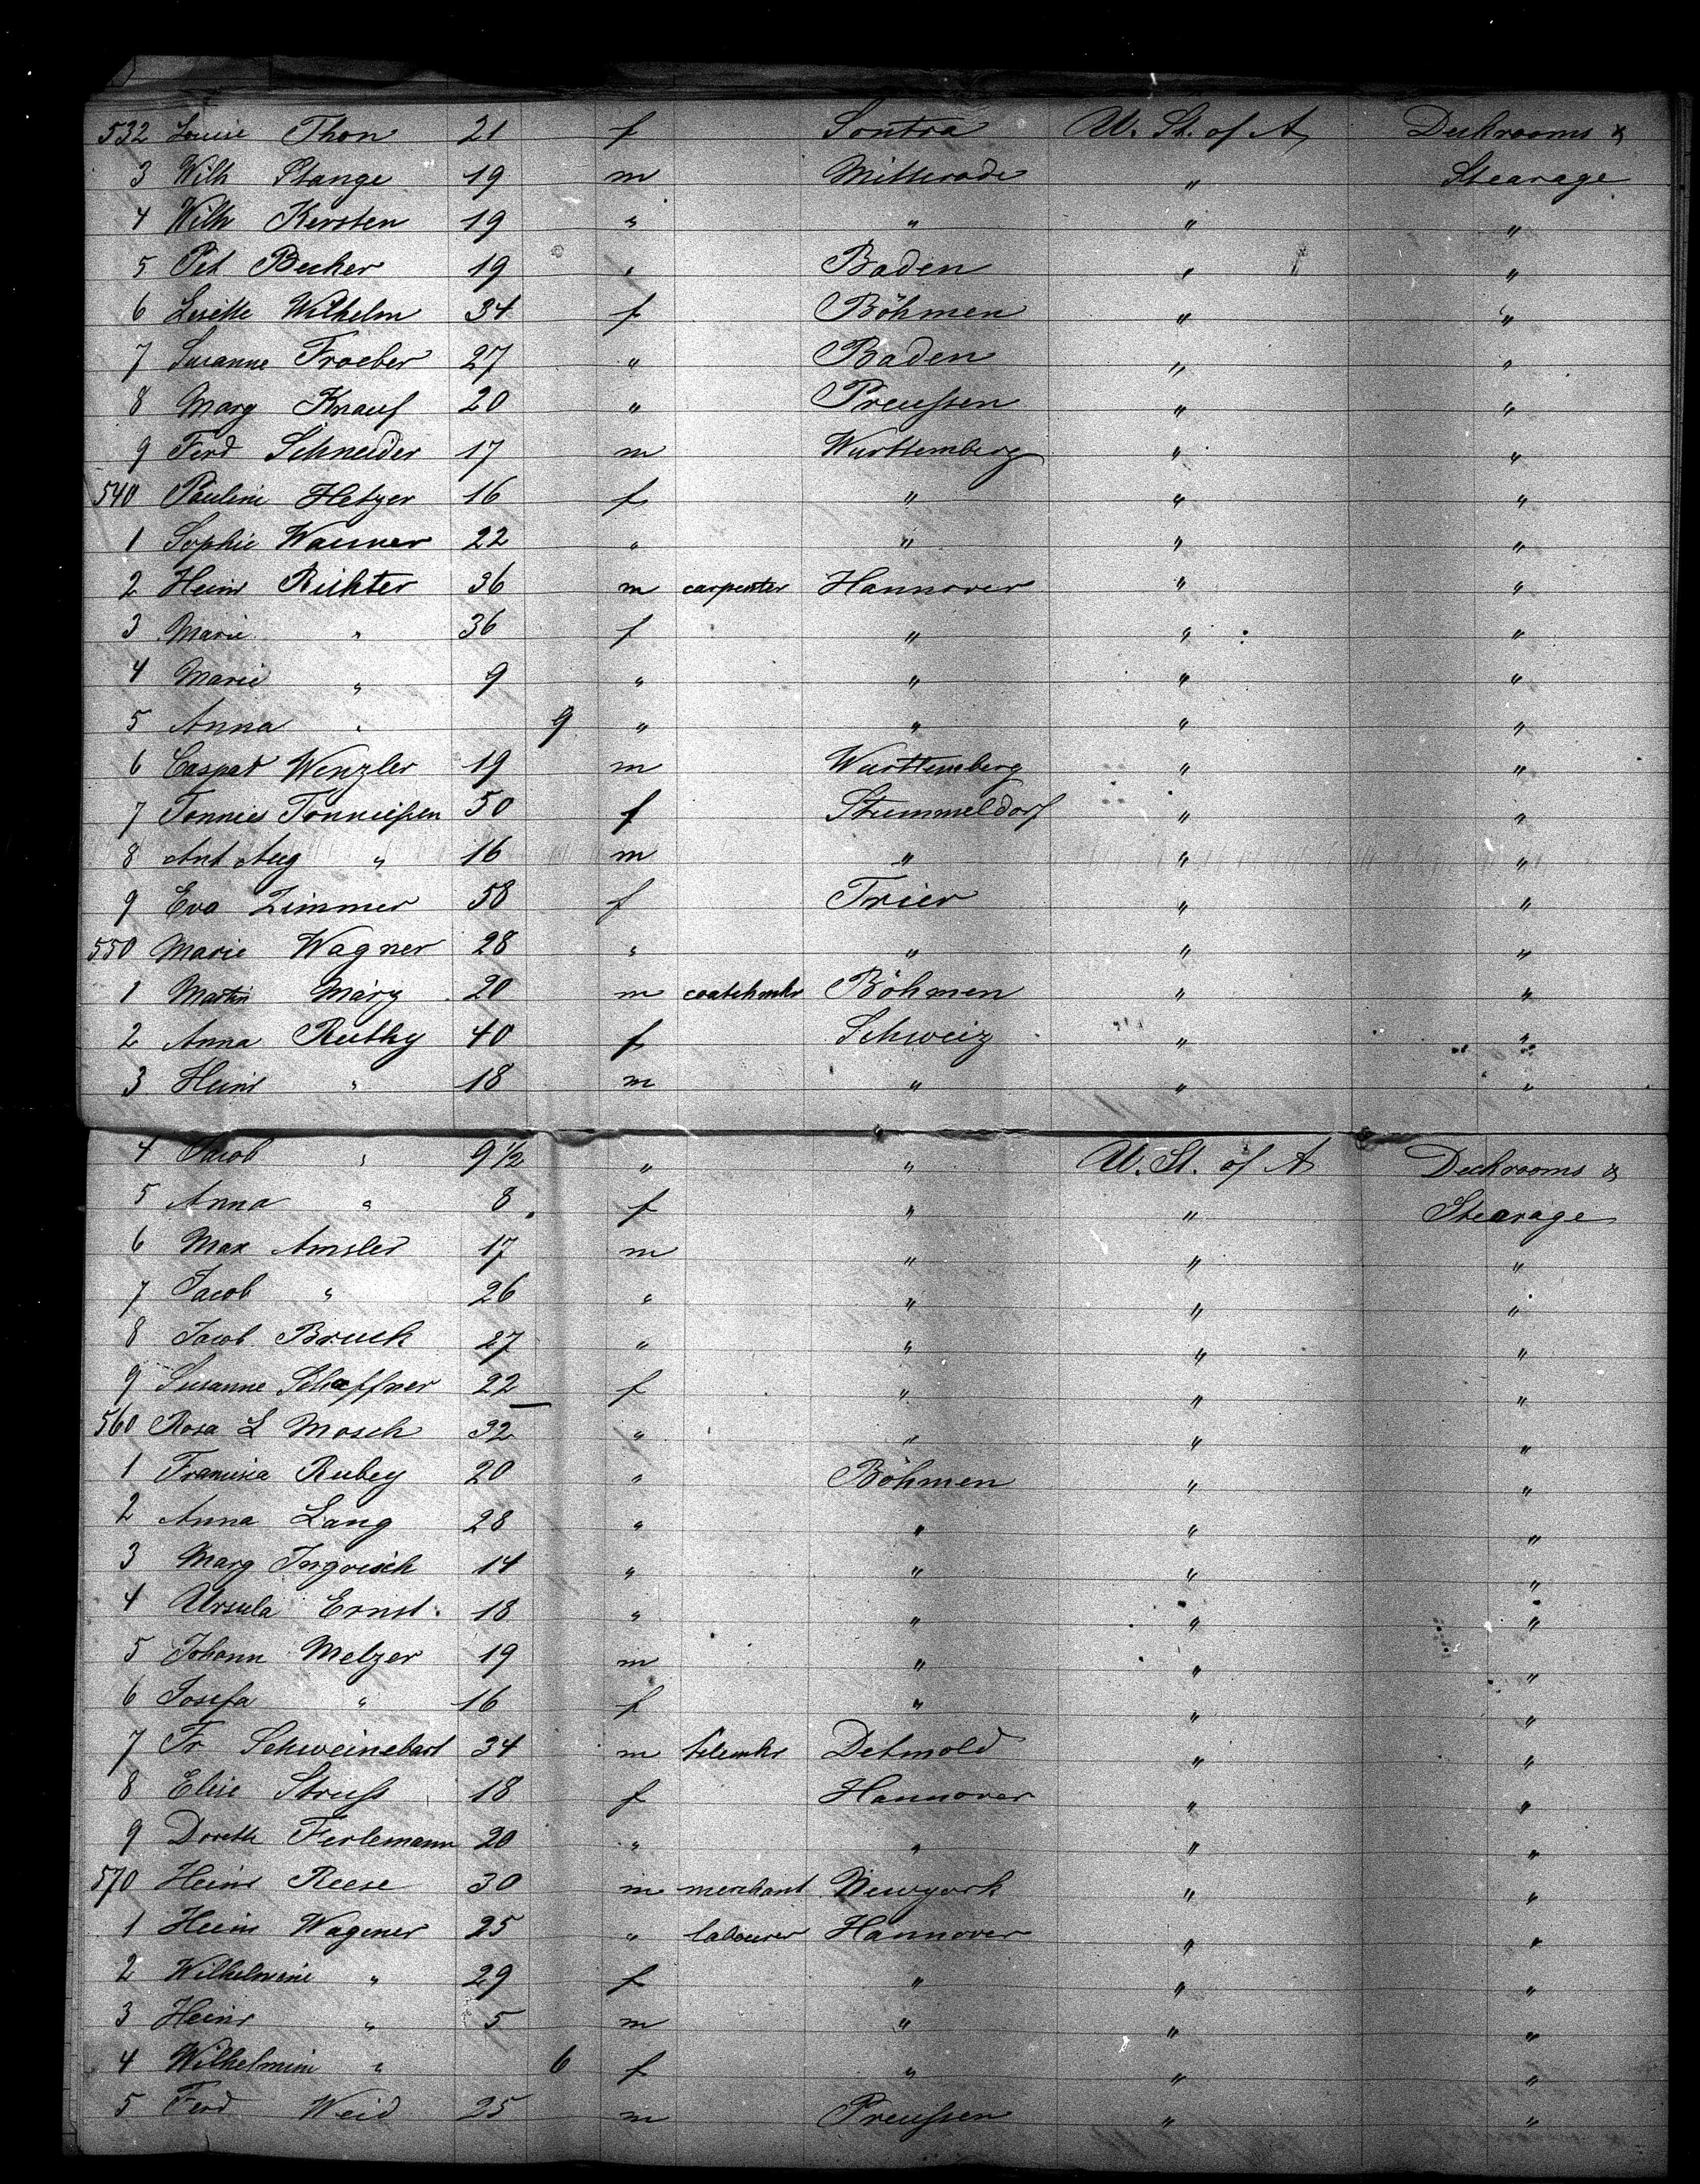 532 Louise Thon 21 f Sontra U. St. of A Deckrooms &
3 Wilh Stange 19 m Mitterode " Stearage
4 Wilh Kersten 19 " " " "
5 Pet Becker 19 " Baden " "
6 Lisette Wilhelm 34 f Böhmen " "
7 Susanne Froeber 27 " Baden " "
8 Marg Knauf 20 " Preußen " "
9 Ferd Schneider 17 m Wurttemberg " "
540 Pauline Hetzer 16 f " " "
1 Sophie Wanner 22 " " " "
2 Heinr Richter 36 m carpenter Hannover " "
3 Marie " 36 f " " "
4 Marie " 9 " " " "
5 Anna " 9 " " " "
6 Caspar Wenzler 19 m Wurttemberg " "
7 Tonnies Tonnießen 50 f Stummeldorf " "
8 Ant Aug " 16 m " " "
9 Eva Zimmer 58 f Trier " "
550 Marie Wagner 28 " " " "
1 Martin Márg 20 m Böhmen " "
2 Anna Ruthy 40 f Schweiz " "
3 Heinr " 18 m " " "
4 Jacob " 9 1/2 " " U. St. of A Deckrooms &
5 Anna " 8 f " " Stearage
6 Max Amsler 17 m " " "
7 Jacob " 26 " " " "
8 Jacob Bruck 27 " " " "
9 Susanne Schaffner 22 f " " "
560 Rosa L Mosch 32 " " " "
1 Francisca Rubey 20 " Böhmen " "
2 Anna Lang 28 " " " "
3 Marg Ingrisch 14 " " " "
4 Ursula Ernst 18 " " " "
5 Johann Melzer 19 m " " "
6 Josefa " 16 f " " "
7 Fr Schweinebart 34 m Detmold " "
8 Elise Struß 18 f Hannover " "
9 Doreth Ferlemann 20 " " " "
570 Heinr Reese 30 m merchant Newyork " "
1 Heinr Wagener 25 " labourer Hannover " "
2 Wilhelmine " 29 f " " "
3 Heinr " 5 m " " "
4 Wilhelmine " 6 f " " "
5 Ferd Weid 25 m Preußen " "